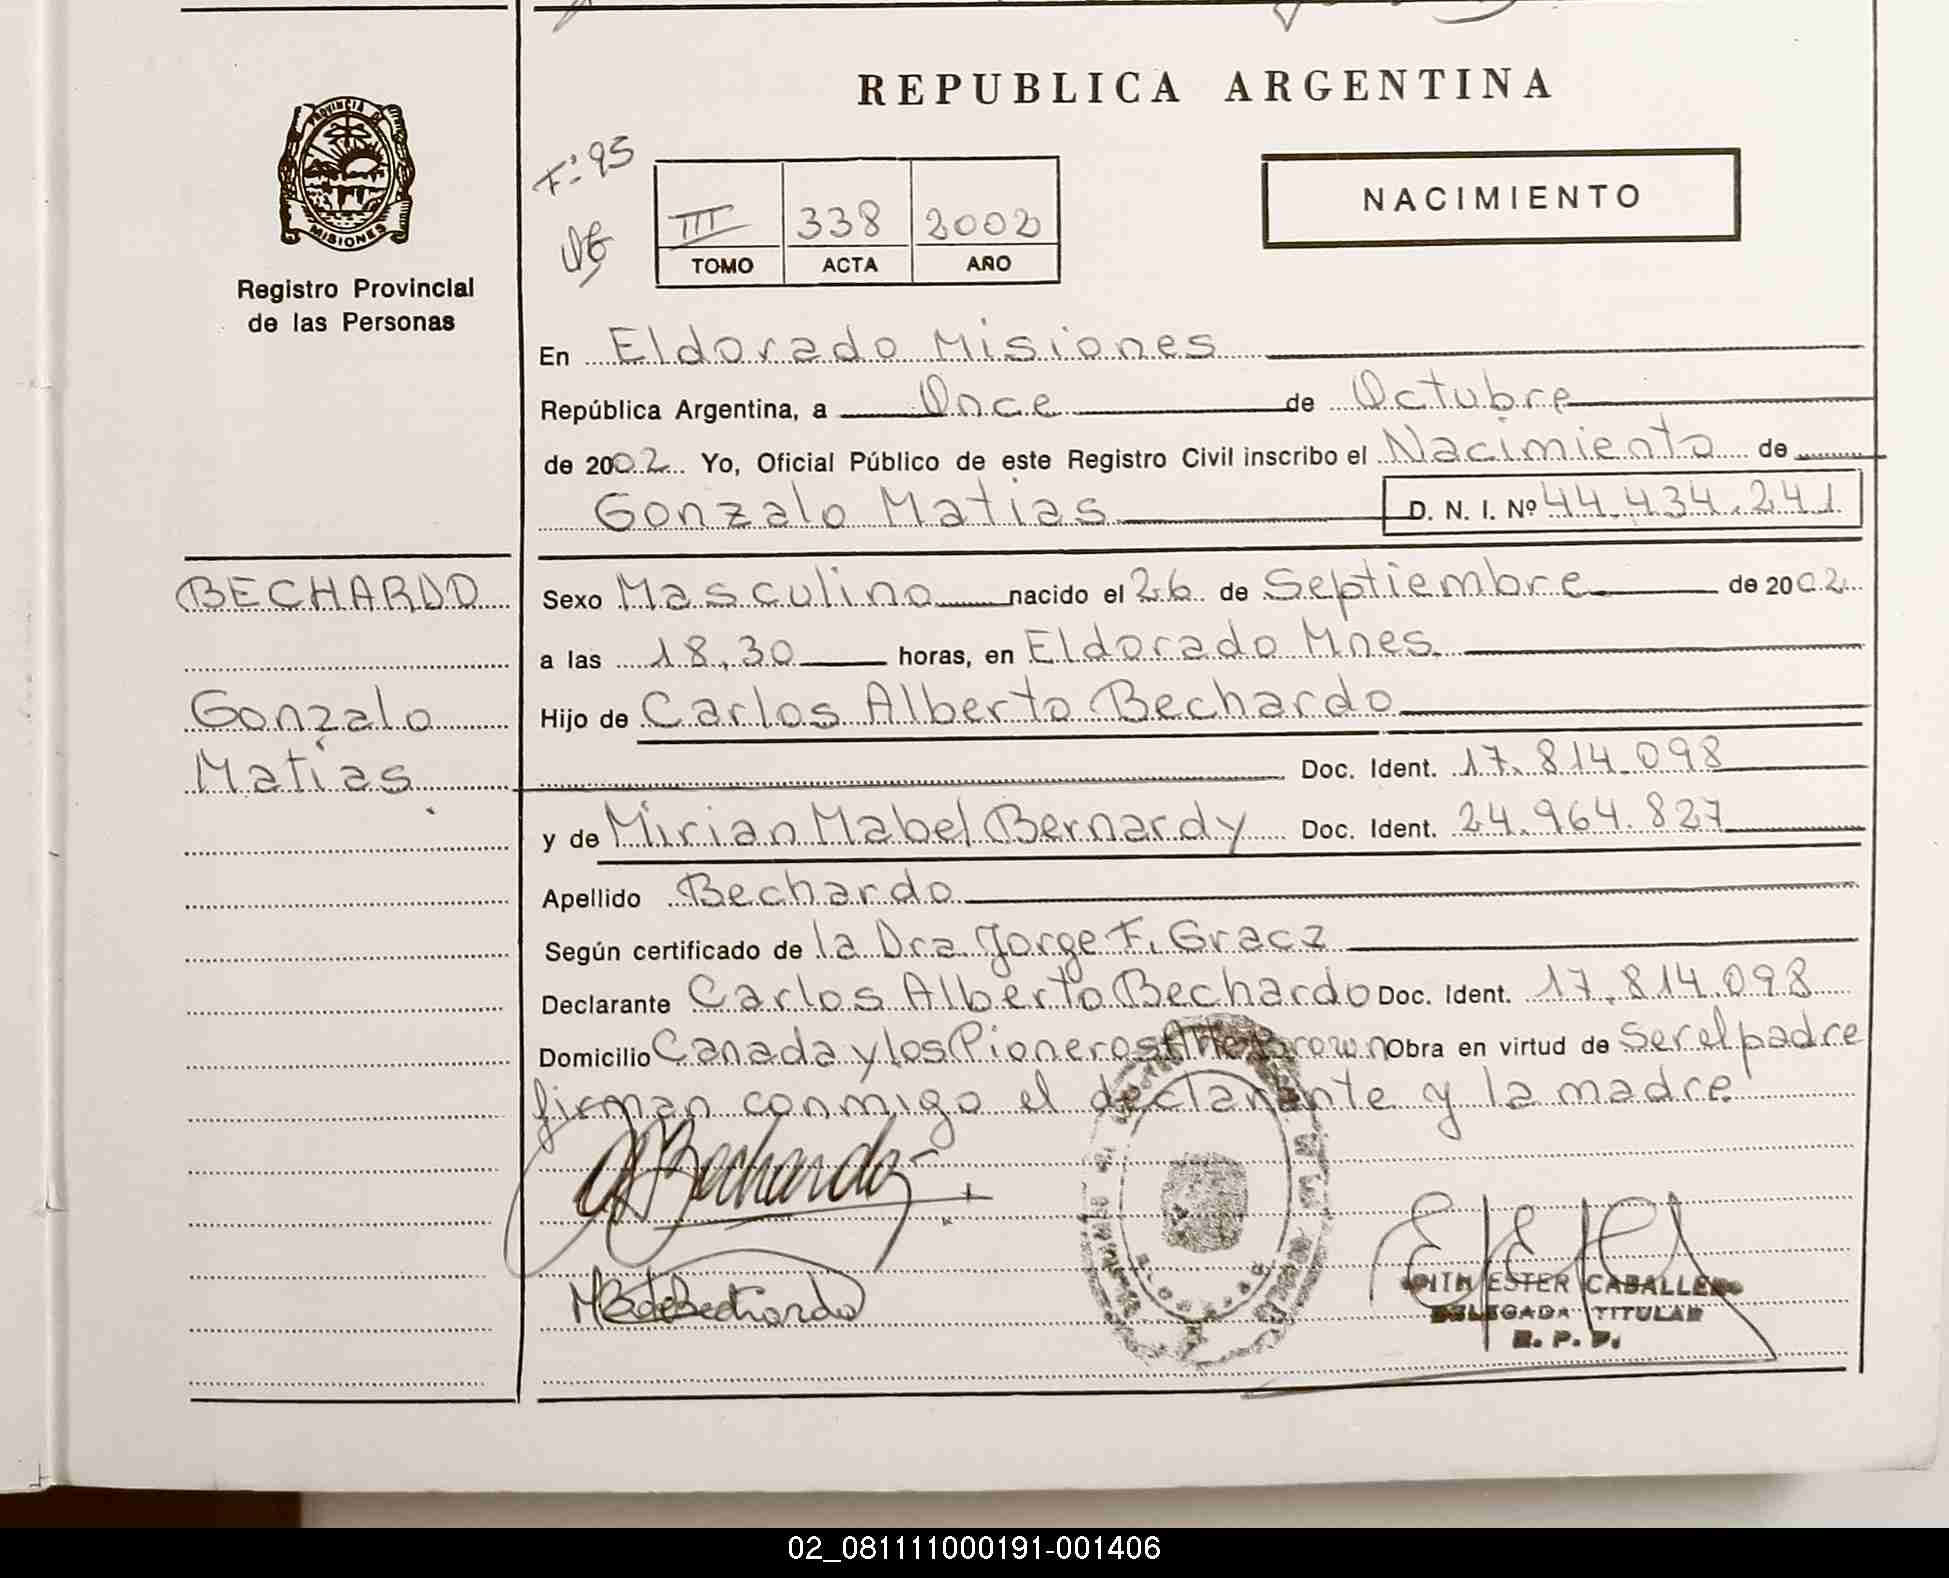 REPUBLICA ARGENTINA
PROVINCIA DE
MISIONES
Registro Provincial
de las Personas
Fº 95
III 338 2002
TOMO ACTA AÑO
NACIMIENTO
En Eldorado Misiones
República Argentina, a Once de Octubre
de 2002 Yo, Oficial Público de este Registro Civil inscribo el Nacimiento de
Gonzalo Matias D. N. I. Nº 44.434.241
BECHARDO
Gonzalo
Matias
Sexo Masculino nacido el 26 de Septiembre de 2002
a las 18,30 horas, en Eldorado Mnes.
Hijo de Carlos Alberto Bechardo
Doc. Ident. 17.814.098
y de Mirian Mabel Bernardy Doc. Ident. 24.964.827
Apellido Bechardo
Según certificado de la Dra. Jorge F. Gracz
Declarante Carlos Alberto Bechardo Doc. Ident. 17.814.098
Domicilio Canada y los Pioneros Alte Brown Obra en virtud de ser el padre
firman conmigo el declarante y la madre
Bechardo
M B de Bechardo
ESTER CABALLERO
DELEGADA TITULAR
R. P. P.
02_081111000191-001406